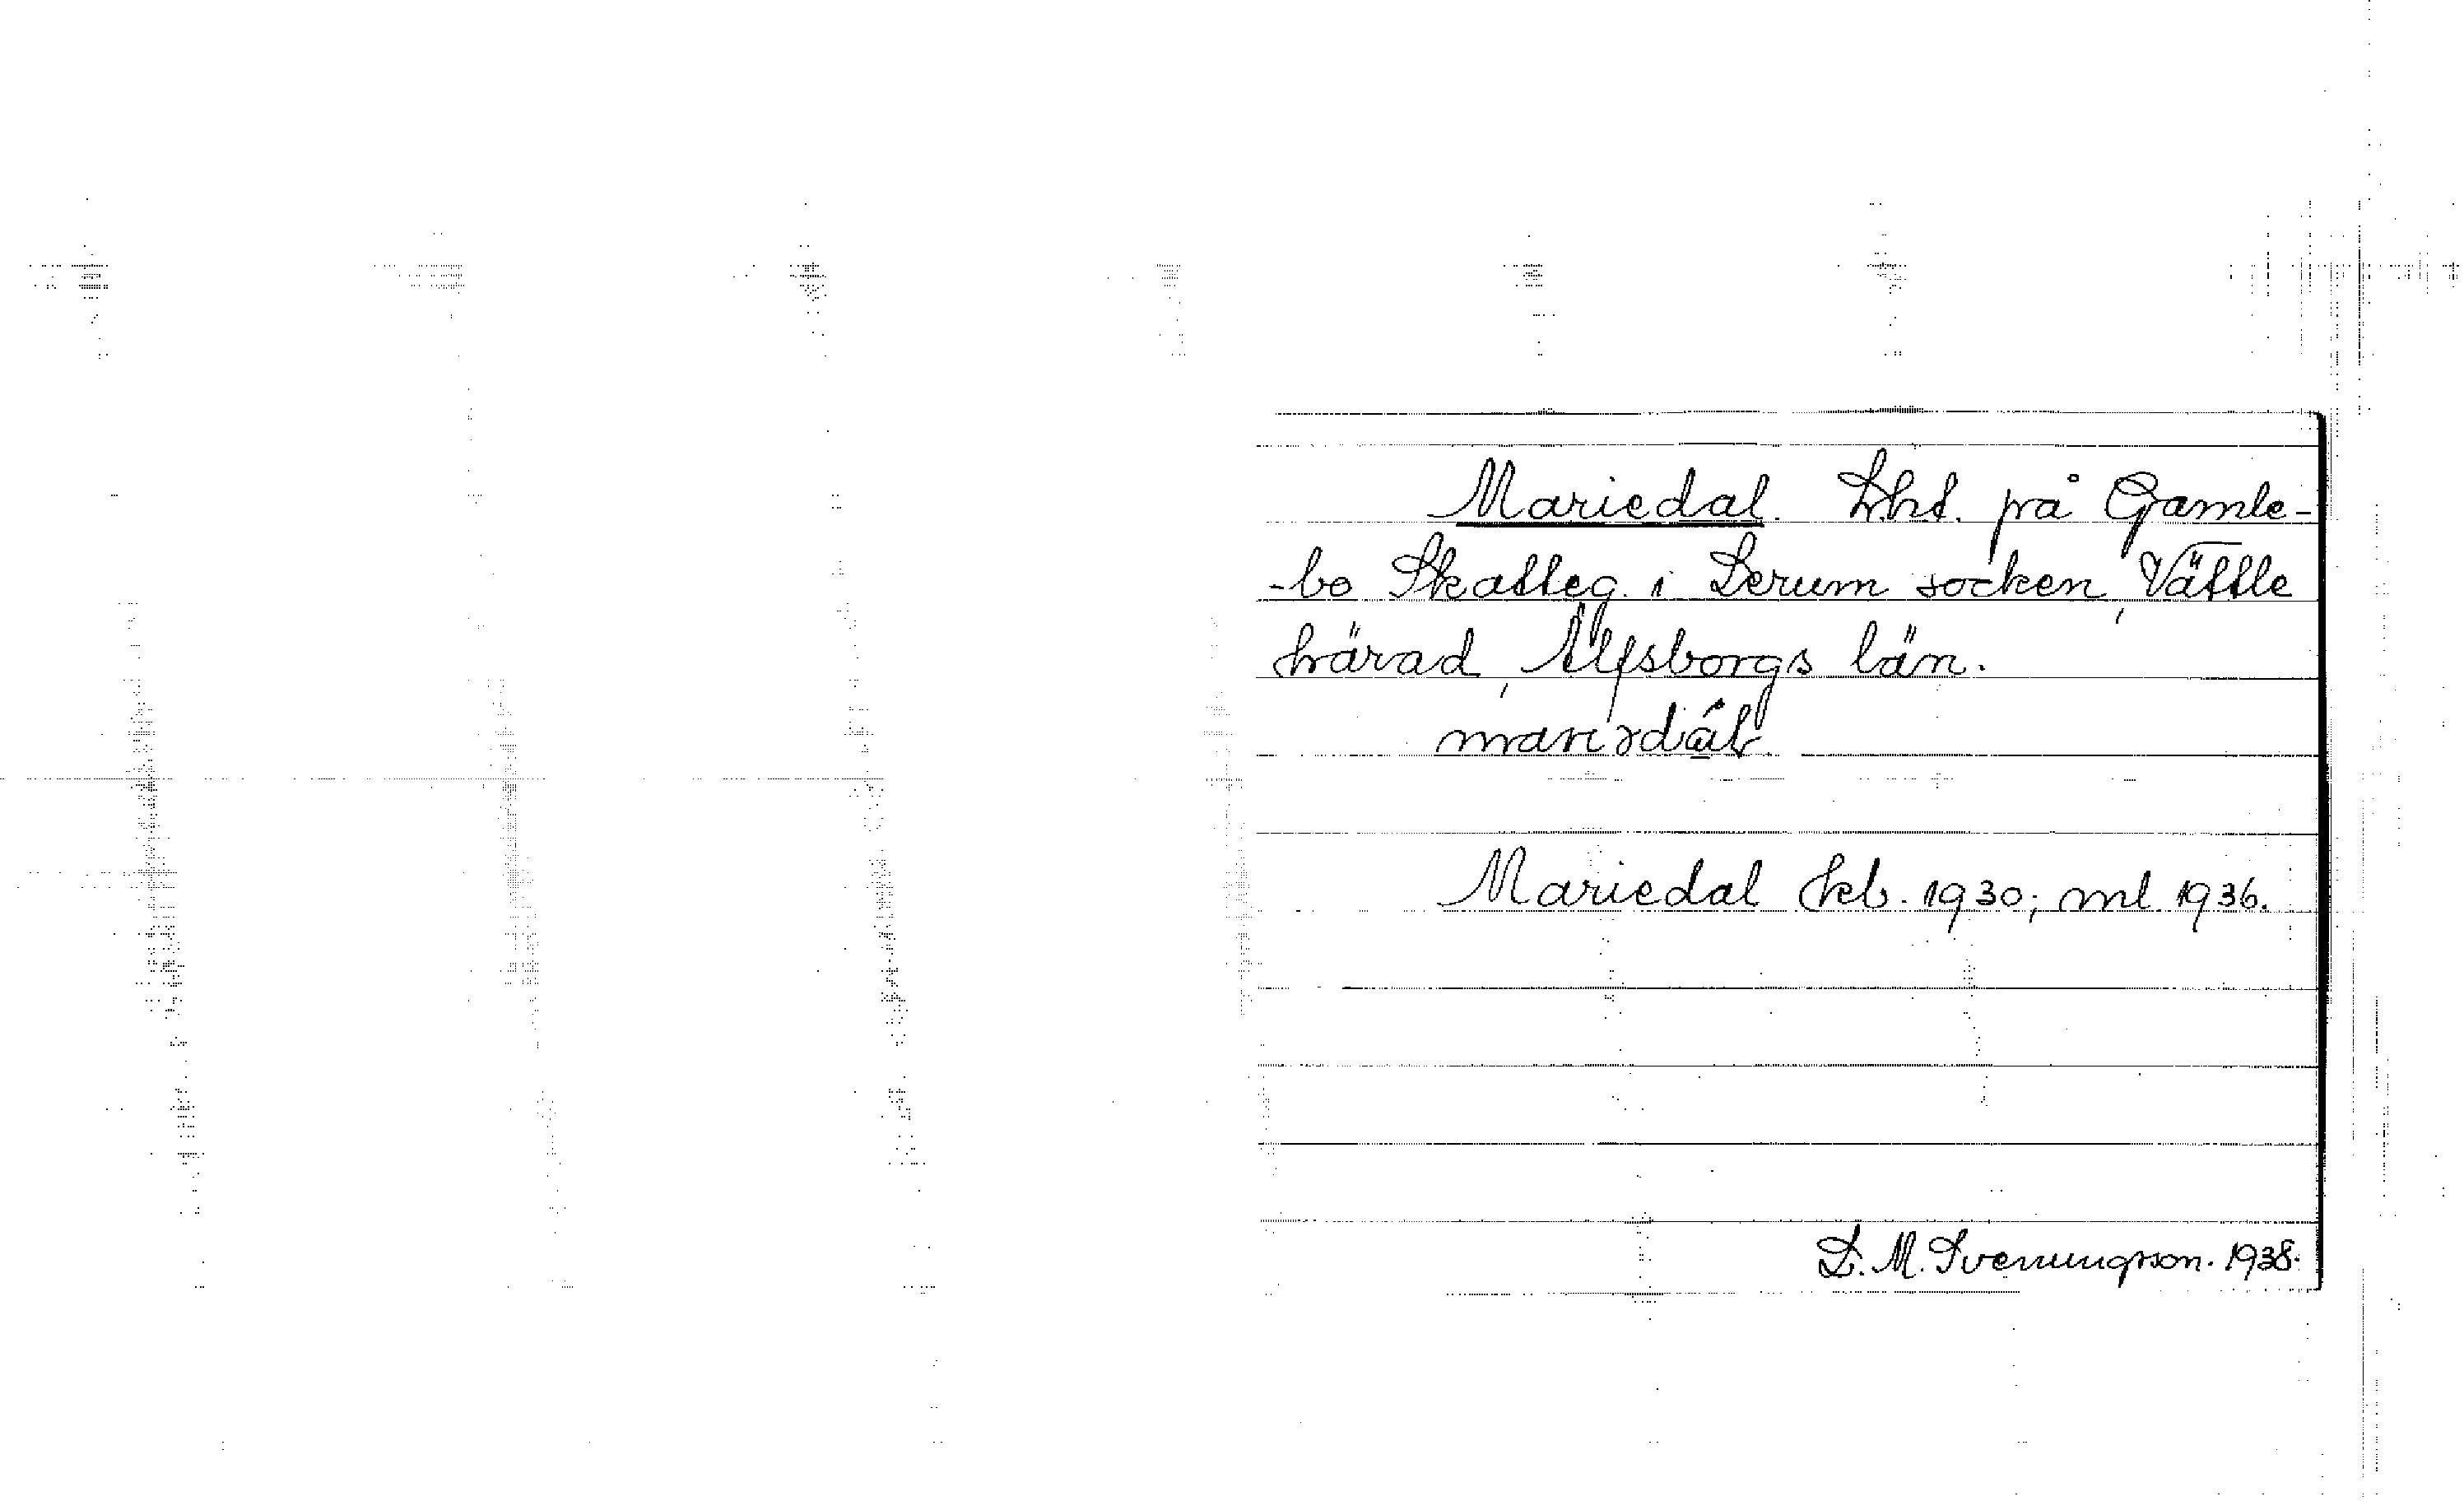 Mariedal. Lht. på Gamle-
-bo Skatteg. i Lerum socken, Vättle
härad, Älfsborgs län.
Mariedal kb. 1930; ml 1936.
L. M. Svenungsson. 1938.